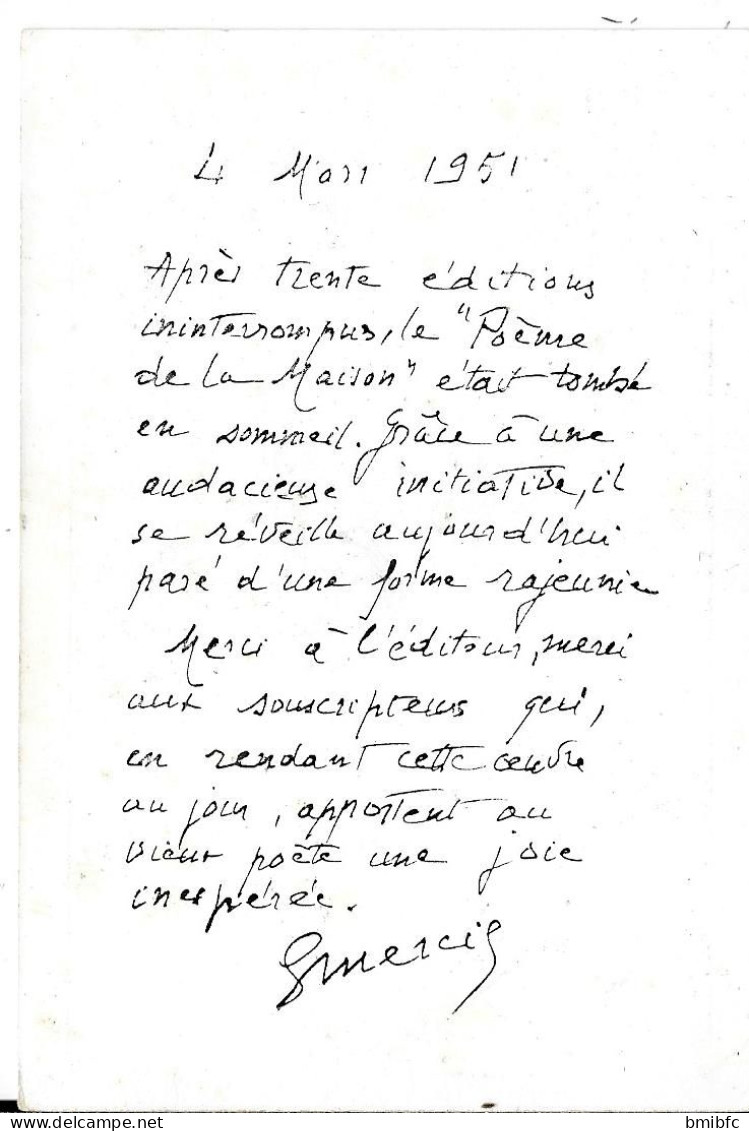 4 Mars 1951
Après trente éditions
ininterrompus, le "Poème
de la Maison" était tombé
en sommeil. Grâce à une
audacieuse initiative, il
se réveille aujourd'hui
paré d'une forme rajeunie
Merci à l'éditeur, merci
aux souscripteurs qui,
en rendant cette oeuvre
au jour, apportent au
vieux poète une joie
inespérée.
Delcampe.net
bmibfc